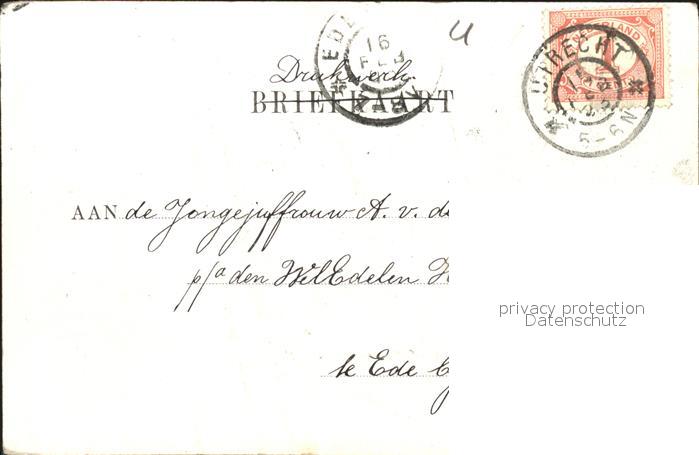 U
Drukwerk.
BRIEFKAART
EDE
16
FEB
UTRECHT
5-6N
NEDERLAND
AAN de Jongejuffrouw A. v. d
p/a den WelEdelen H
te Ede
privacy protection
Datenschutz